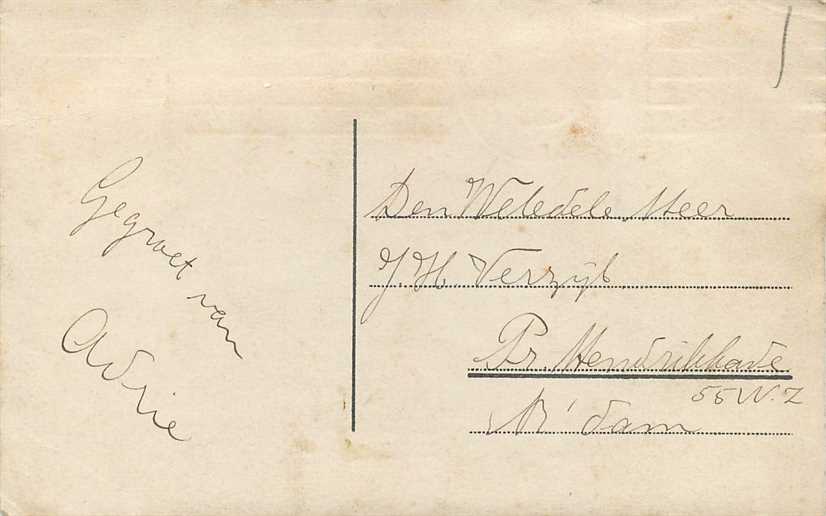 Gegroet van
Adrie
Den Weledele Heer
J. H. Verzijl
Pr. Hendrikkade
55 W.Z
R'dam